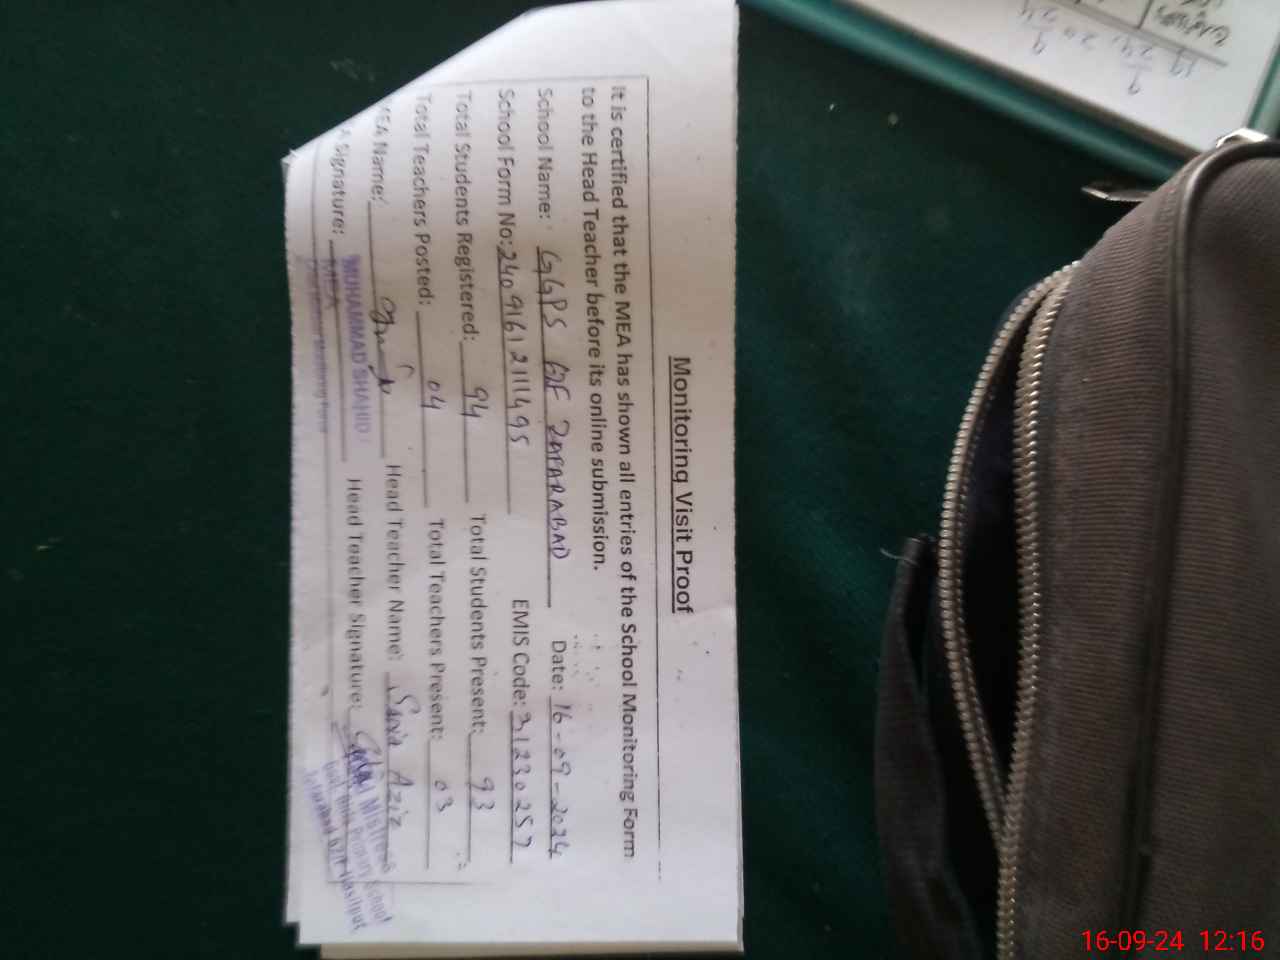 Monitoring Visit Proof
It is certified that the MEA has shown all entries of the School Monitoring Form
to the Head Teacher before its online submission.
School Name: GGPS 67F ZAFARABAD Date: 16-09-2024
School Form No: 240916121111495 EMIS Code: 31230257
Total Students Registered: 94 Total Students Present: 93
Total Teachers Posted: 04 Total Teachers Present: 03
MEA Name: Head Teacher Name: Sania Aziz
A Signature: Head Teacher Signature:
MUHAMMAD SHAHID
MEA
Mistress
Primary School
Hasilpur
16-09-24 12:16